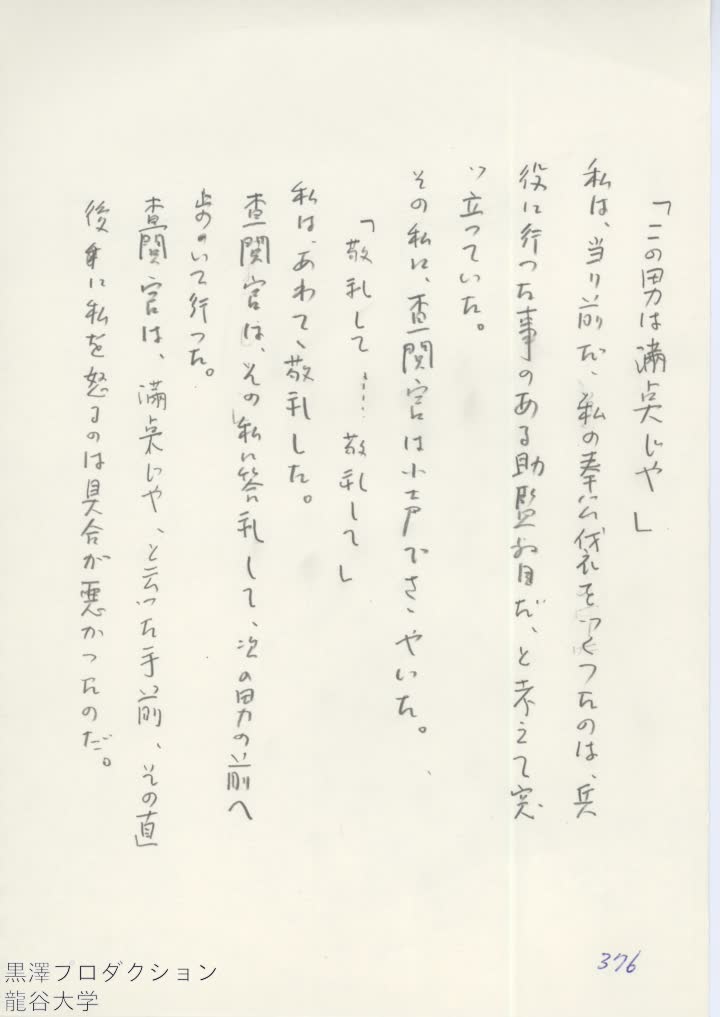 「この男は満点じや」
私は、当り前だ、私の奉公袋をつくつたのは、兵
役に行つた事のある助監督だ、と考えて突
つ立つていた。
その私に、査閲官は小声でさゝやいた。
「敬礼して……敬礼して」
私は、あわてゝ敬礼した。
査閲官は、その私に答礼して、次の男の前へ
歩いて行つた。
査閲官は、満点じや、と云つた手前、その直
後に私を怒るのは具合が悪かつたのだ。
376
黒澤プロダクション
龍谷大学